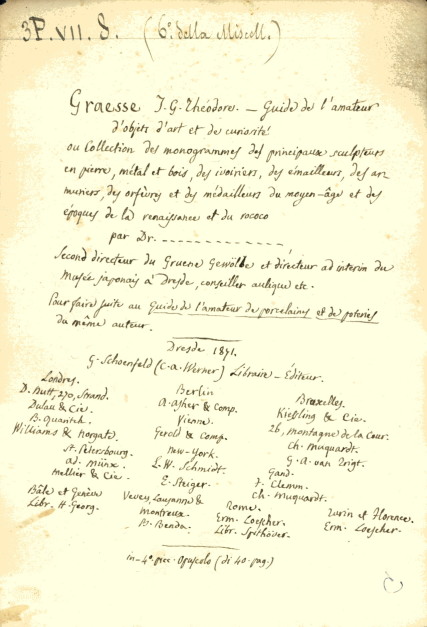 3P.VII.8. (6ª della Miscell.)
Graesse J.G. Théodore. — Guide de l'amateur
d'objets d'art et de curiosité
ou Collection des monogrammes des principaux sculpteurs
en pierre, métal et bois, des ivoiriers, des émailleurs, des ar
muriers, des orfèvres et des médailleurs du moyen-âge et des
époques de la renaissance et du rococo
par Dr. - - - - - - - - - - - - -,
Second directeur du Gruene Gewölbe et directeur ad interim du
Musée japonais à Dresde, conseiller aulique etc.
Pour faire suite au Guide de l'amateur de porcelaines et de poteries
du même auteur.
Dresde 1871.
G. Schoenfeld (C. A. Werner) Libraire — Éditeur.
Londres.
D. Nutt, 270, Strand.
Dulau & Cie.
B. Quaritch.
Williams & Norgate.
St. Petersbourg.
ad. Münx.
Mellier & Cie.
Bâle et Genève
Libr. H. Georg.
Berlin
A. Asher & Comp.
Vienne.
Gerold & Comp.
New-York.
L. W. Schmidt.
E. Steiger.
Vevey, Lausanne &
Montreux.
B. Benda.
Bruxelles.
Kiessling & Cie.
26, Montagne de la Cour.
Ch. Muquardt.
G. A. van Trigt.
Gand.
F. Clemm.
Ch. Muquardt.
Rome.
Erm. Loescher.
Libr. Spithöver.
Turin et Florence.
Erm. Loescher.
in-4° picc. Opuscolo (di 40. pag.)